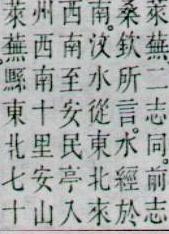 萊蕪二志同。前志
桑欽所言。水經於
南。汶水從東北來
西南至安民亭入
州西南十里安山
萊蕪縣東北七十